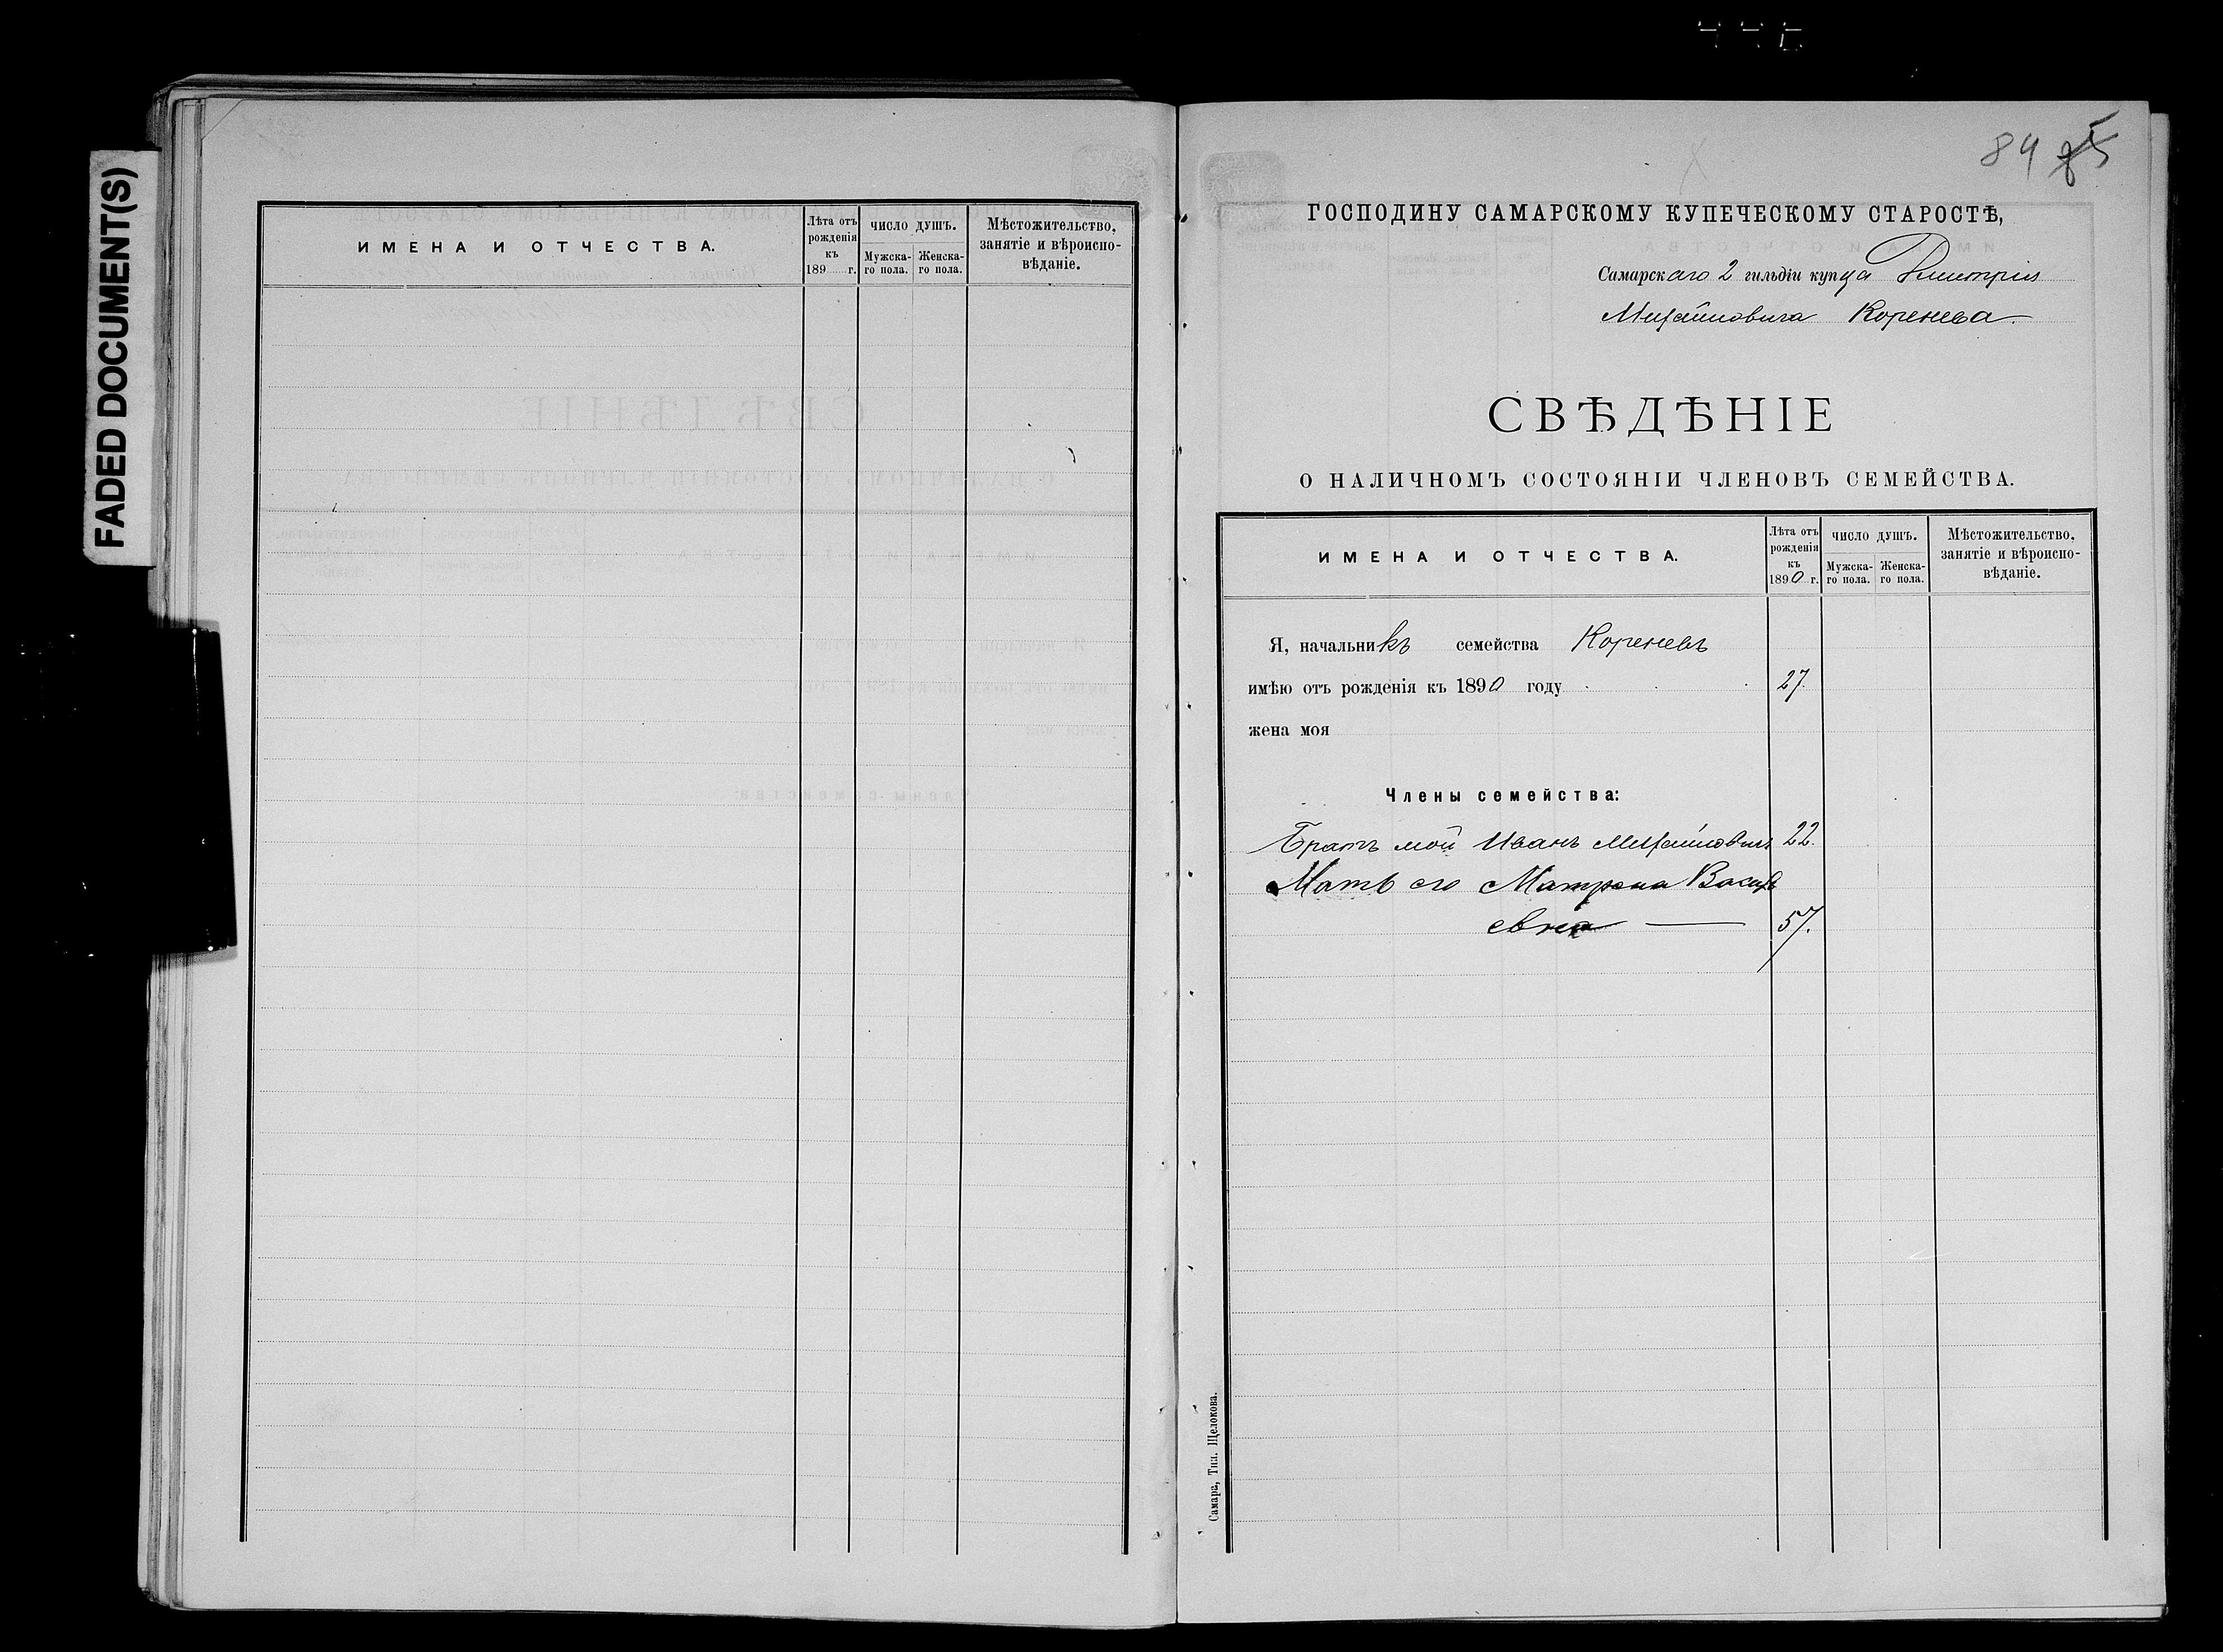 FADED DOCUMENT(S)
ИМЕНА И ОТЧЕСТВА.
Лѣта отъ рожденія къ 189 г.
ЧИСЛО ДУШЪ.
Мужска-го пола.
Женска-го пола.
Мѣстожительство, занятіе и вѣроиспо-вѣданіе.
84
ГОСПОДИНУ САМАРСКОМУ КУПЕЧЕСКОМУ СТАРОСТѢ,
Самарскаго 2 гильдіи купца Дмитрія
Михайловича Коренева.
СВѢДѢНІЕ
О НАЛИЧНОМЪ СОСТОЯНІИ ЧЛЕНОВЪ СЕМЕЙСТВА.
ИМЕНА И ОТЧЕСТВА.
Лѣта отъ рожденія къ 1890 г.
ЧИСЛО ДУШЪ.
Мужска-го пола.
Женска-го пола.
Мѣстожительство, занятіе и вѣроиспо-вѣданіе.
Я, начальникъ семейства Кореневъ
имѣю отъ рожденія къ 1890 году 27.
жена моя
Члены семейства:
Братъ мой Иванъ Михайловичъ 22.
Мать его Матрена Василь
евна — 57.
Самара, Тип. Щелокова.